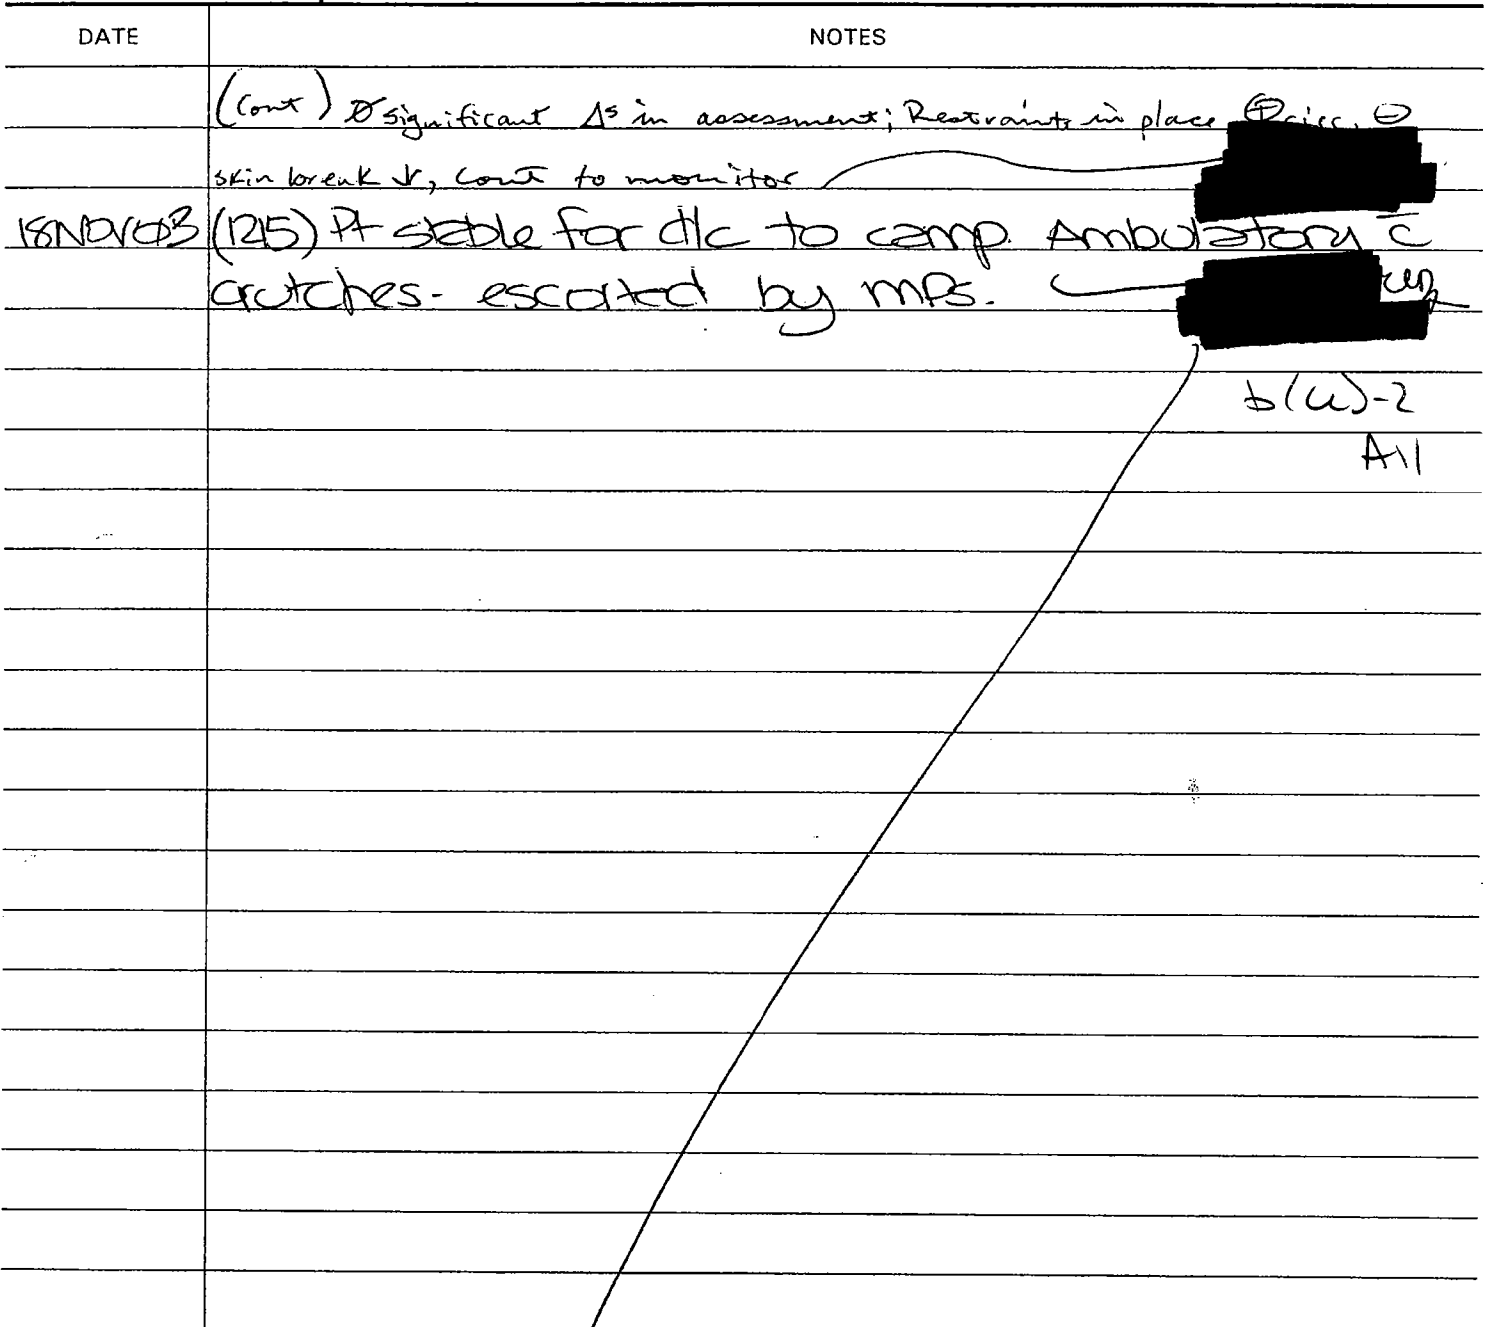 DATE NOTES
(Cont) Ø significant Δs in assessment; Restraints in place ⊕ circ, ⊖
skin break ↓, Cont to monitor
18NOV03 (1215) Pt stable for d/c to camp. Ambulatory c̄
crutches - escorted by MPs.
b(6)-2
All